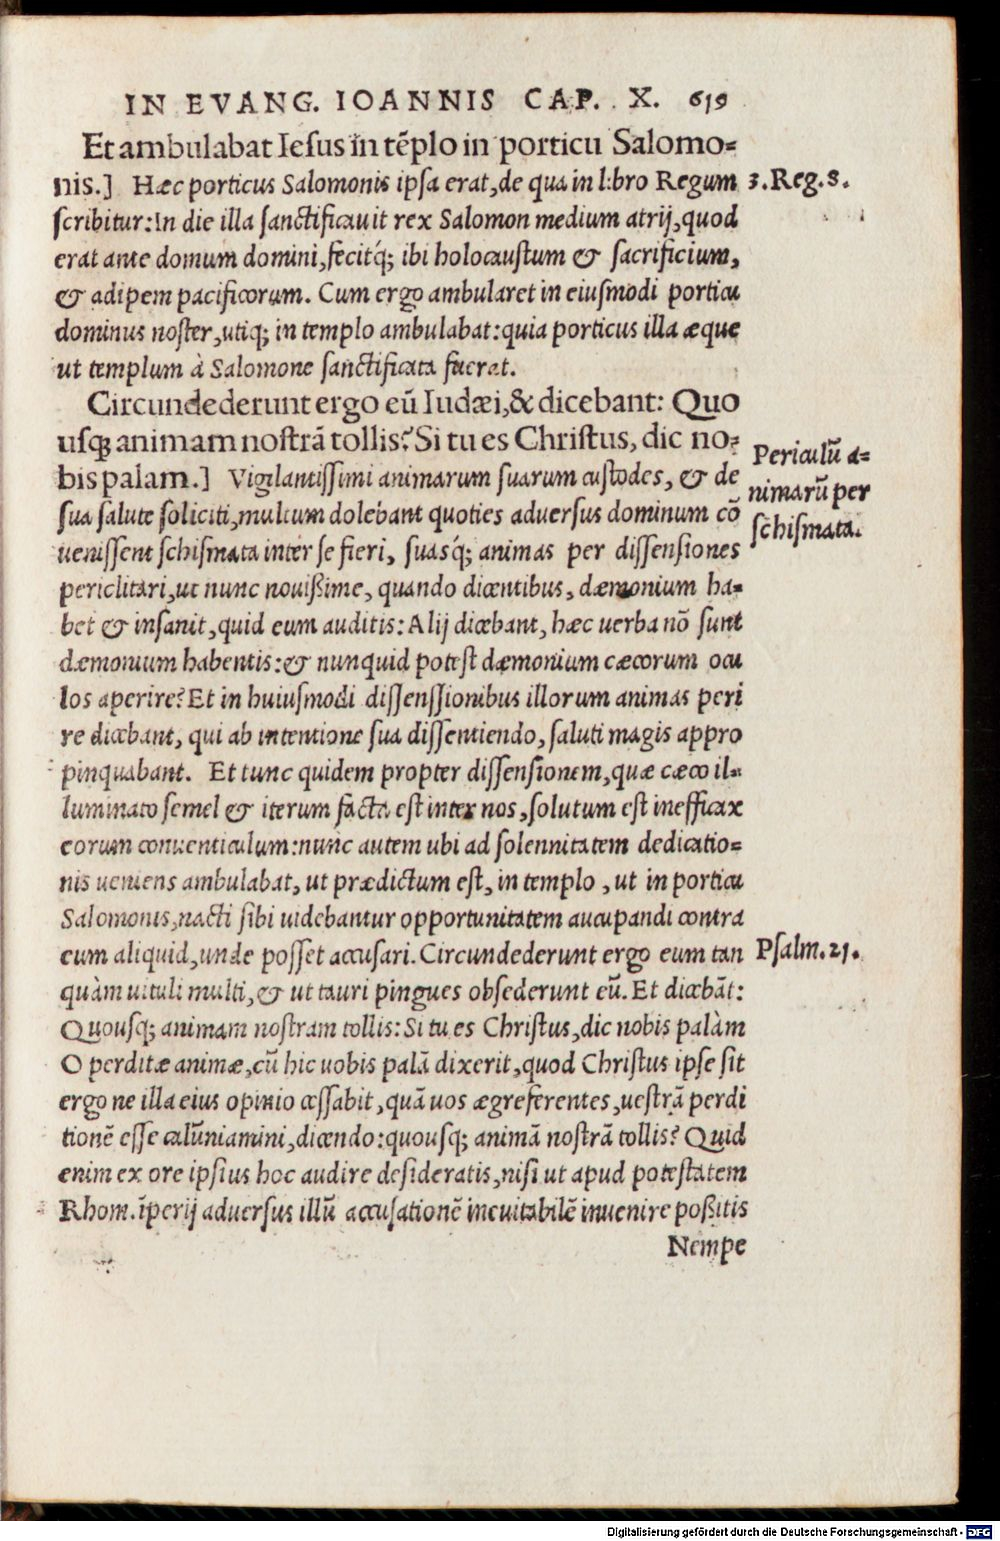 IN EVANG. IOANNIS CAP. X. 619
Et ambulabat Iesus in tẽplo in porticu Salomo=
nis.] Hæc porticus Salomonis ipsa erat, de qua in libro Regum
3. Reg. 8.
scribitur: In die illa sanctificauit rex Salomon medium atrij, quod
erat ante domum domini, fecitq́; ibi holocaustum & sacrificium,
& adipem pacificorum. Cum ergo ambularet in eiusmodi porticu
dominus noster, utiq; in templo ambulabat: quia porticus illa æque
ut templum à Salomone sanctificata fuerat.
Circundederunt ergo eũ Iudæi, & dicebant: Quo
usq; animam nostrã tollis? Si tu es Christus, dic no=
bis palam.] Vigilantissimi animarum suarum custodes, & de
Periculũ a=
nimarũ per
schismata.
sua salute soliciti, multum dolebant quoties aduersus dominum cõ
uenissent schismata inter se fieri, suasq́; animas per dissensiones
periclitari, ut nunc nouißime, quando dicentibus, dæmonium ha=
bet & insanit, quid eum auditis: Alij dicebant, hæc uerba nõ sunt
dæmonium habentis: & nunquid potest dæmonium cæcorum ocu
los aperire? Et in huiusmodi dissenssionibus illorum animas peri
re dicebant, qui ab intentione sua dissentiendo, saluti magis appro
pinquabant. Et tunc quidem propter dissensionem, quæ cæco il=
luminato semel & iterum facta est inter nos, solutum est inefficax
eorum conuenticulum: nunc autem ubi ad solennitatem dedicatio=
nis ueniens ambulabat, ut prædictum est, in templo, ut in porticu
Salomonis, nacti sibi uidebantur opportunitatem aucupandi contra
eum aliquid, unde posset accusari. Circundederunt ergo eum tan
Psalm. 21.
quàm uituli multi, & ut tauri pingues obsederunt eũ. Et dicebãt:
Quousq; animam nostram tollis: Si tu es Christus, dic nobis palàm
O perditæ animæ, cũ hic uobis palã dixerit, quod Christus ipse sit
ergo ne illa eius opinio cessabit, quã uos ægre ferentes, uestrã perdi
tionẽ esse calũniamini, dicendo: quousq; animã nostrã tollis? Quid
enim ex ore ipsius hoc audire desideratis, nisi ut apud potestatem
Rhom. ĩperij aduersus illũ accusationẽ ineuitabilẽ inuenire poßitis
Nempe
Digitalisierung gefördert durch die Deutsche Forschungsgemeinschaft - DFG